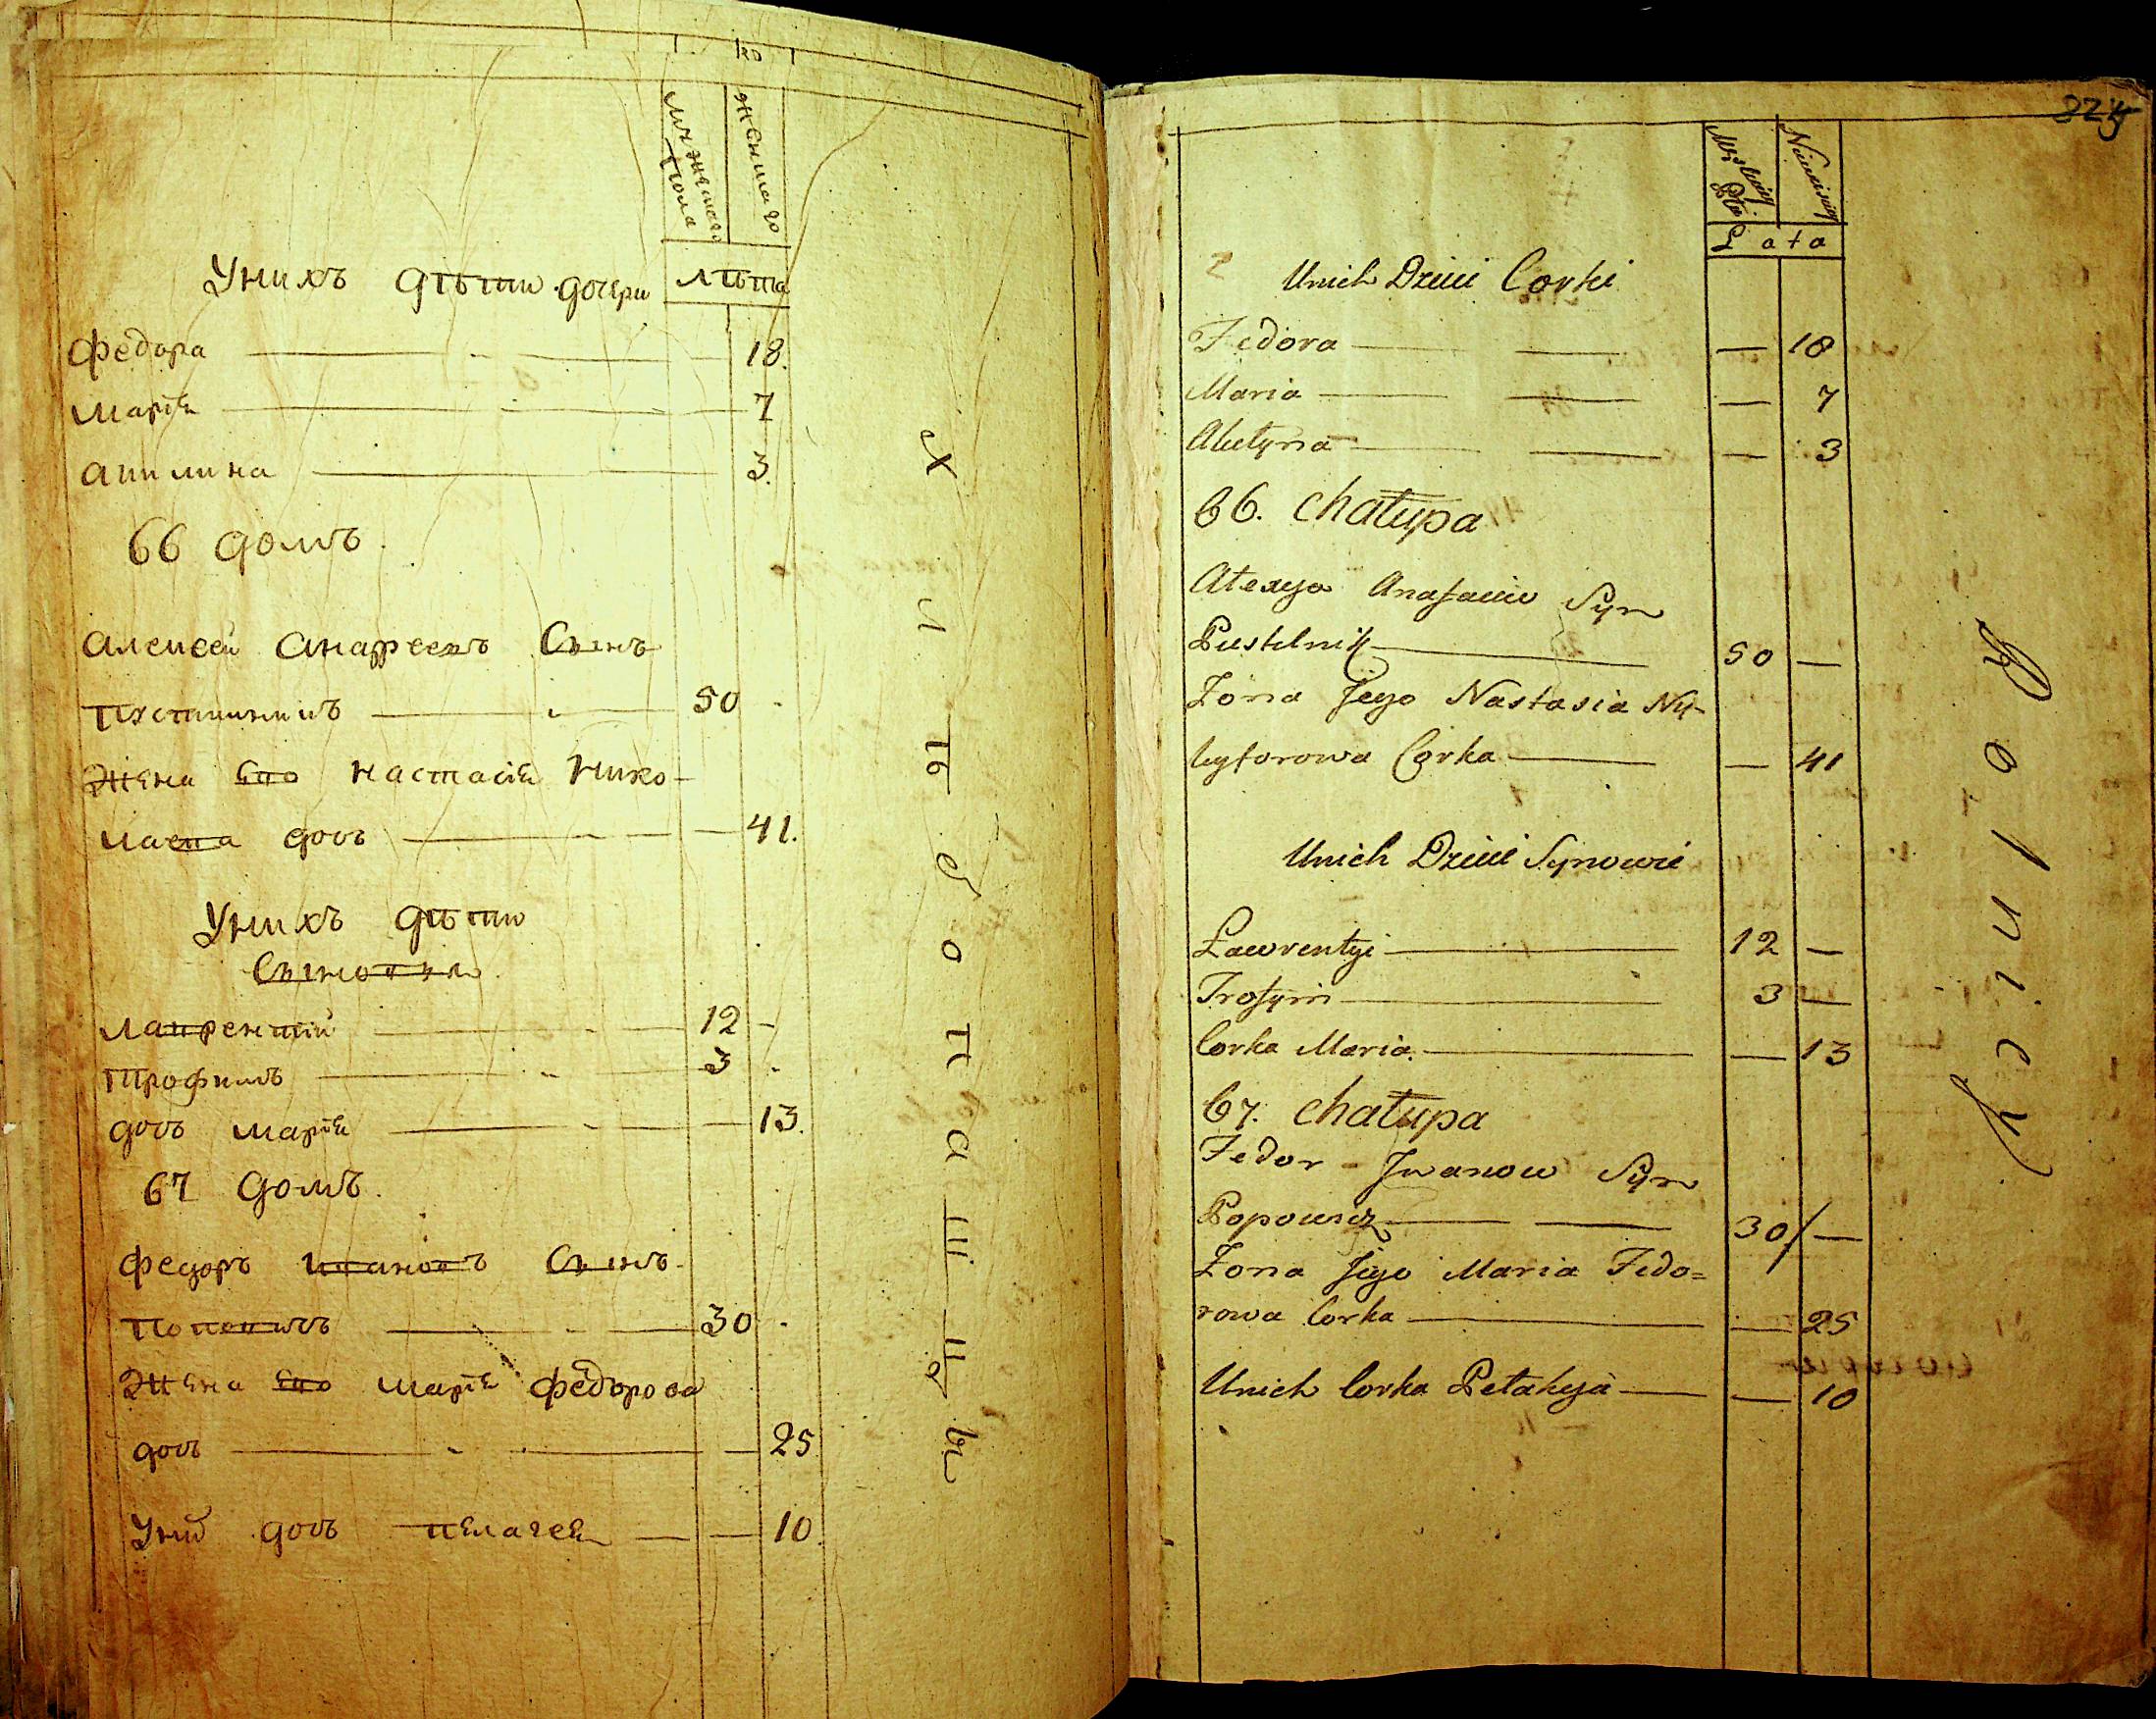 ко
Мужескаго
Пола
женскаго
лѣта
Унихъ дѣти дочери
Федора 18.
Марiя 7
Акилина 3.
66 домъ.
Алексей Андреевъ Сынъ
Пустилникъ 50
Жена Его Настасiя Нико-
лаева дочь 41.
Унихъ дѣти
Сыновья
Лаврентiй 12
Трофимъ 3
дочь Марiя 13.
67 домъ.
Федоръ Ивановъ Сынъ
Поповичъ 30
Жена Его Марiя Федорова
дочь 25
Уних дочь Пелагея 10.
хлѣбопашцы
325
Męskiey
Płci
Niewieściey
Lata
Unich Dzieci Corki
Fedora — 18
Maria — 7
Akulyna — 3
66. Chałupa
Alexyo Syn
Pustelnik 50 —
Żona Jego Nastasia Ny-
kyforowa Corka — 41
Unich Dzieci Synowie
Ławrentyi 12 —
Trofym 3 —
Corka Maria — 13
67. Chałupa
Fedor Jwanow Syn
Popowicz 30/ —
Żona Jego Maria Fedo=
rowa Corka — 25
Unich Corka Pełaheja — 10
Rolnicy